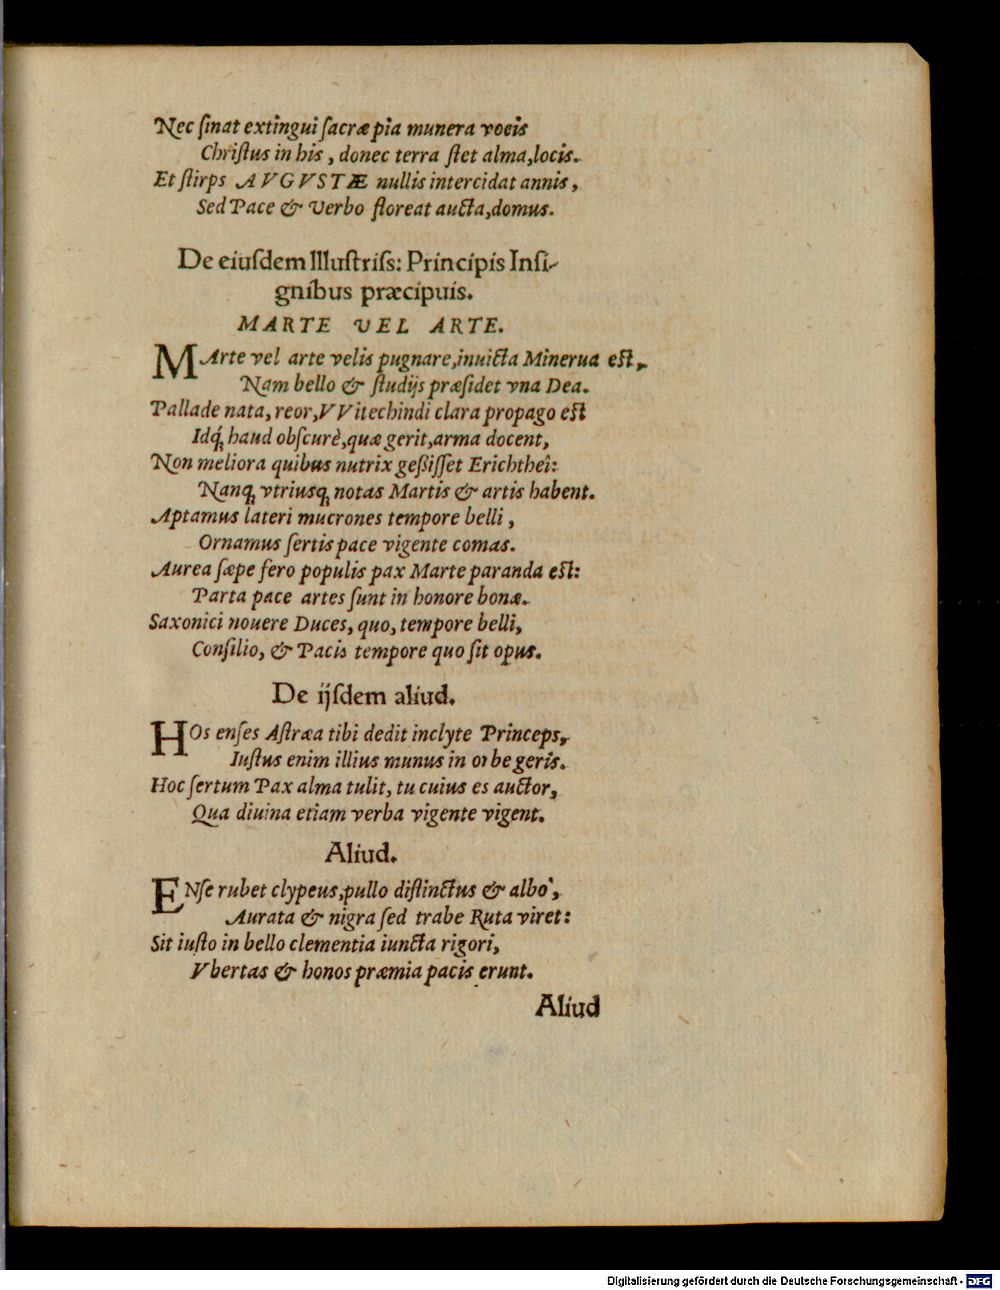 Nec ſinat extingui ſacræ pia munera vocis
Chriſtus in his, donec terra ſtet alma, locis.
Et ſtirps AVGVSTÆ nullis intercidat annis,
Sed Pace & Verbo floreat aucta, domus.
De eiuſdem Illuſtriſs: Principis Inſi-
gnibus præcipuis.
MARTE VEL ARTE.
MArte vel arte velis pugnare, inuicta Minerua eſt,
Nam bello & ſtudijs præſidet vna Dea.
Pallade nata, reor, VVitechindi clara propago eſt
Idq́; haud obſcurè, quæ gerit, arma docent,
Non meliora quibus nutrix geßiſſet Erichthei:
Nanq; vtriusq; notas Martis & artis habent.
Aptamus lateri mucrones tempore belli,
Ornamus ſertis pace vigente comas.
Aurea ſæpe fero populis pax Marte paranda eſt:
Parta pace artes ſunt in honore bonæ.
Saxonici nouere Duces, quo, tempore belli,
Conſilio, & Pacis tempore quo ſit opus.
De ijſdem aliud.
HOs enſes Aſtræa tibi dedit inclyte Princeps,
Iuſtus enim illius munus in orbe geris.
Hoc ſertum Pax alma tulit, tu cuius es auctor,
Qua diuina etiam verba vigente vigent.
Aliud.
ENſe rubet clypeus, pullo diſtinctus & albo,
Aurata & nigra ſed trabe Ruta viret:
Sit iuſto in bello clementia iuncta rigori,
Vbertas & honos præmia pacis erunt.
Aliud
Digitalisierung gefördert durch die Deutsche Forschungsgemeinschaft - DFG